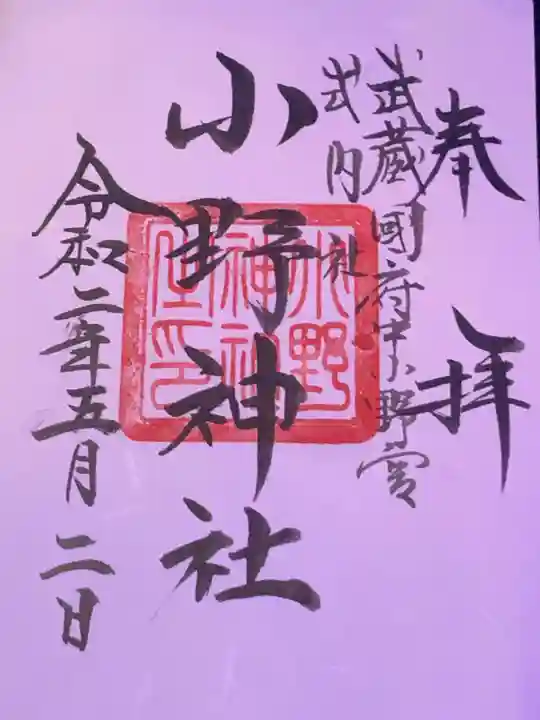 奉拝
武蔵國府中小野宮
式内社
小野神社
令和二年五月二日
小野
神社